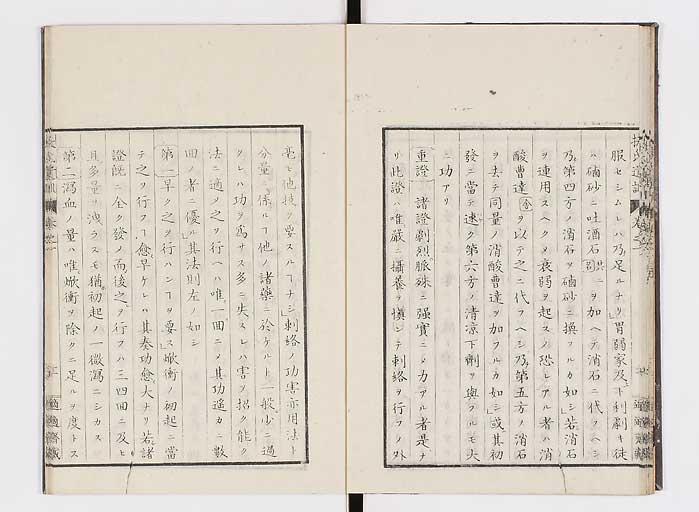 服セシムレハ乃足ルナリ」胃弱家及下利劇キ徒
ハ硇砂ニ吐酒石ヲ加ヘテ消石ニ代フヘシ
乃第四方ノ消石ヲ硇砂ニ換フルカ如シ」若消石
ヲ連用スヘクメ衰弱ヲ起スノ恐レアル者ハ消
酸曹達ヲ以テ之ニ代フヘシ乃第五方ノ消石
ヲ去テ同量ノ消酸曹達ヲ加フルカ如シ」或其初
發ニ當テ速ク第六方ノ清凉下劑ヲ與フルモ大
ニ功アリ
重證 諸證劇烈脈殊ニ强實ニメ力アル者是ナ
リ此證ハ唯嚴ニ攝養ヲ愼ンテ刺絡ヲ行フノ外
毫モ他技ヲ要スルヿナシ」刺絡ノ功害亦用法ト
分量ニ係ルヿ他ノ諸藥ニ於ケルト一般少ニ過
クレハ功ヲ爲サス多ニ失スレハ害ヲ招ク能ク
法ニ適メ之ヲ行ヘハ唯一回ニメ其功遙カニ數
回ノ者ニ優ル」其法則左ノ如シ
第一早ク之ヲ行ハンヿヲ要ス」焮衝ノ初起ニ當
テ之ヲ行フヿ愈早ケレハ其奏功愈大ナリ若諸
證既ニ全ク發メ而後之ヲ行フハ三四回ニ及ヒ
且多量ヲ洩ラスモ猶初起ノ一微瀉ニシカス
第二瀉血ノ量ハ唯焮衝ヲ除クニ足ルヲ度トス